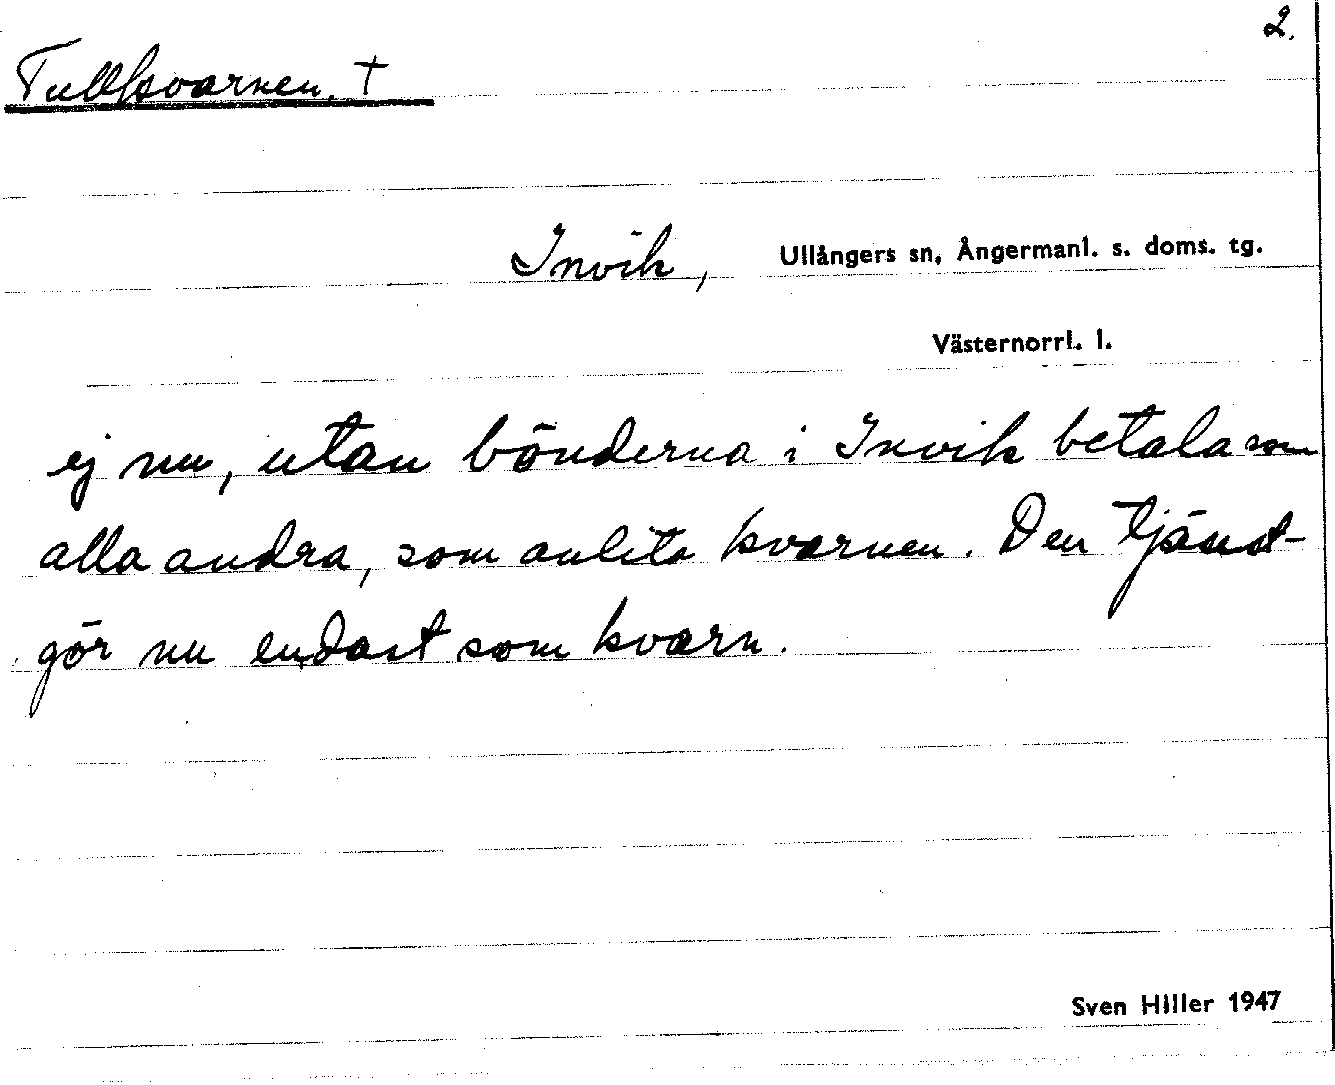 2.
Tullkvarnen. †
Invik, Ullångers sn, Ångermanl. s. doms. tg.
Västernorrl. l.
ej nu, utan bönderna i Invik betala som
alla andra, som anlita kvarnen. Den tjänst-
gör nu endast som kvarn.
Sven Hiller 1947